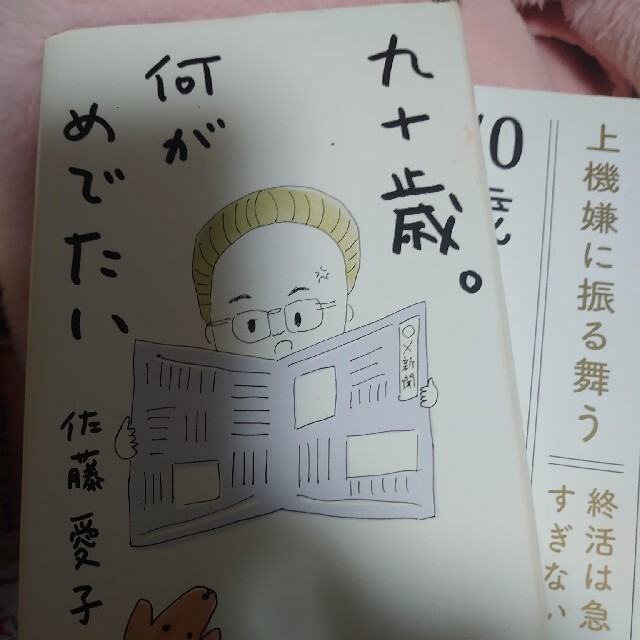 九十歳。
何が
めでたい
佐藤愛子
○×新聞
上機嫌に振る舞う
終活は急
すぎない